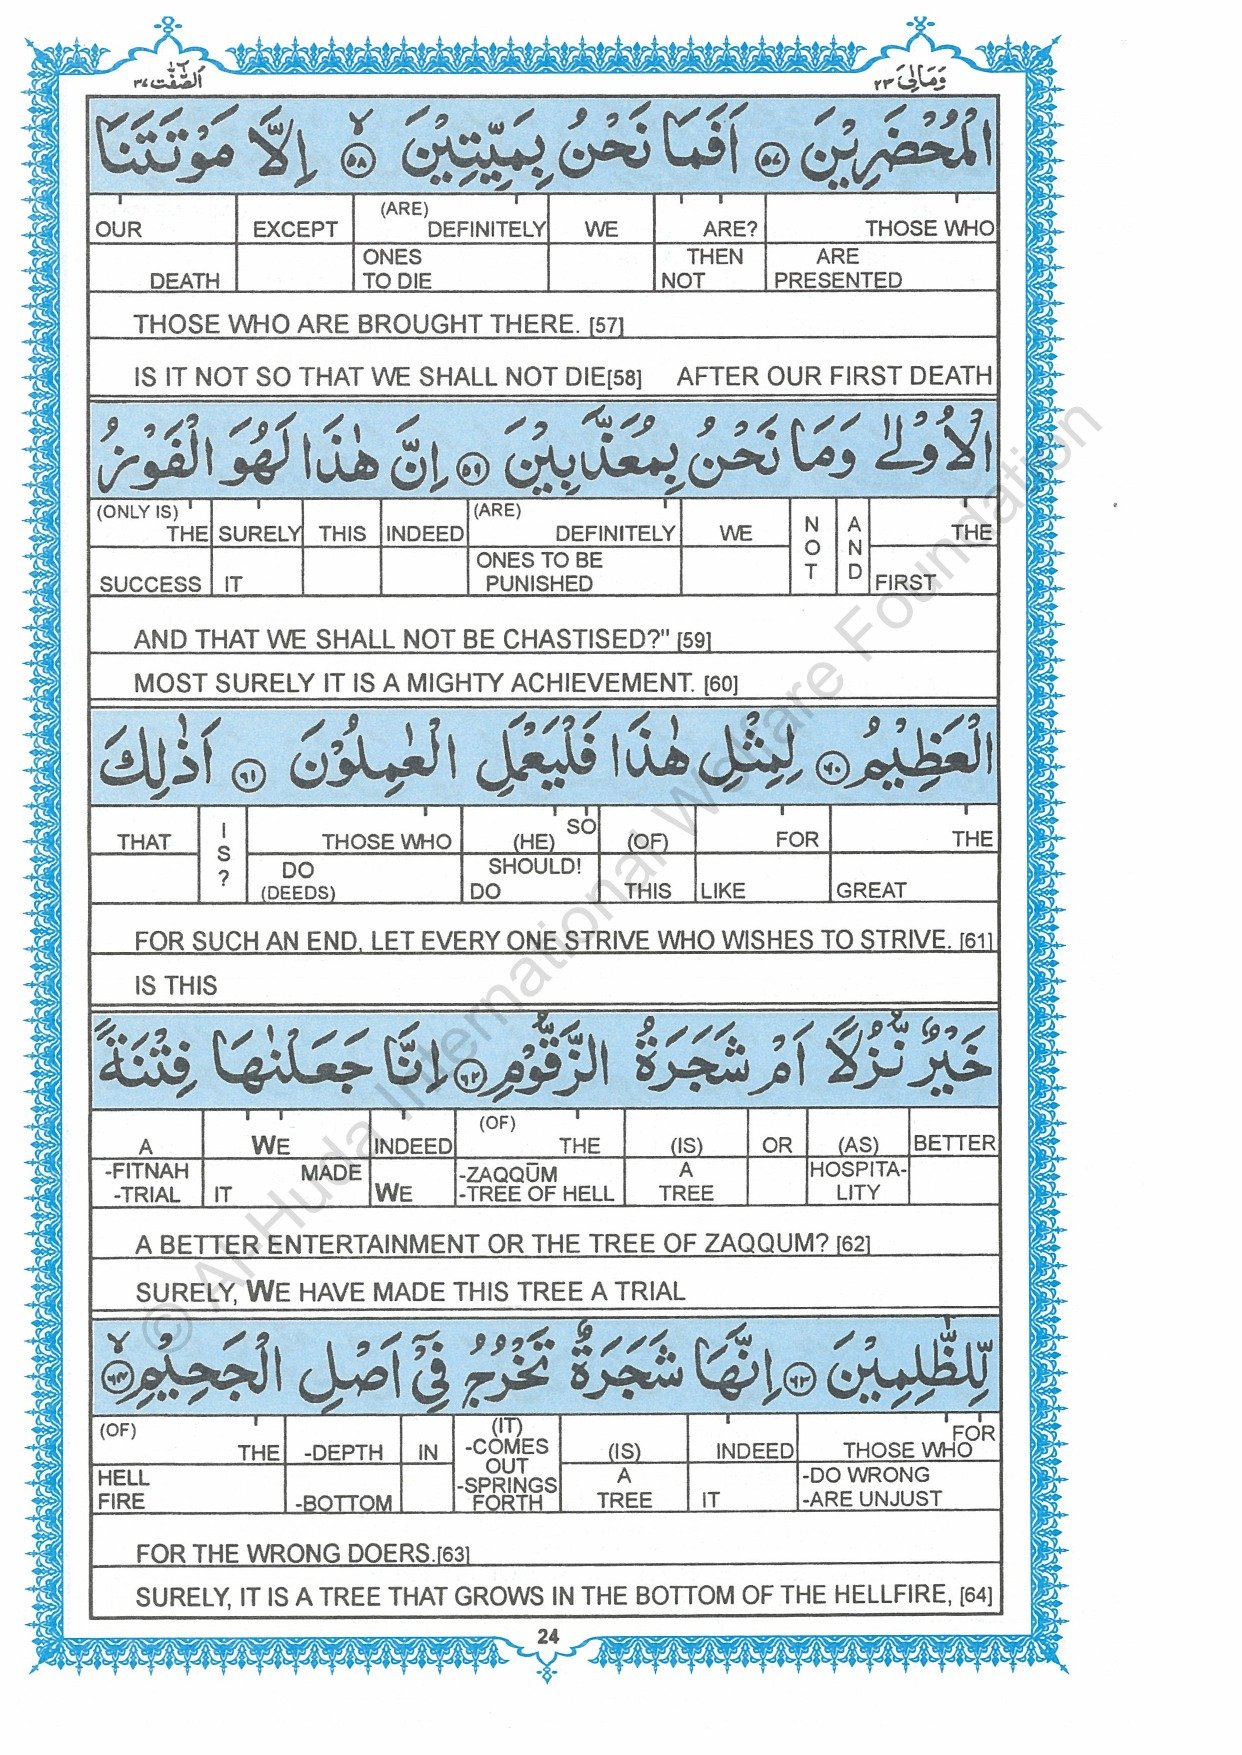 اَلصّٰٓفّٰت ٣٧
وَمَالِیَ ٢٣
الْمُحْضَرِیْنَ ﴿٥٧﴾ اَفَمَا نَحْنُ بِمَیِّتِیْنَ ﴿٥٨﴾ اِلَّا مَوْتَتَنَا
OUR EXCEPT (ARE) DEFINITELY WE ARE? THOSE WHO
DEATH ONES TO DIE THEN NOT ARE PRESENTED
THOSE WHO ARE BROUGHT THERE. [57]
IS IT NOT SO THAT WE SHALL NOT DIE[58] AFTER OUR FIRST DEATH
الْاُوْلٰی وَمَا نَحْنُ بِمُعَذَّبِیْنَ ﴿٥٩﴾ اِنَّ هٰذَا لَهُوَ الْفَوْزُ
(ONLY IS) THE SURELY THIS INDEED (ARE) DEFINITELY WE NOT AND THE
SUCCESS IT ONES TO BE PUNISHED FIRST
AND THAT WE SHALL NOT BE CHASTISED?" [59]
MOST SURELY IT IS A MIGHTY ACHIEVEMENT. [60]
الْعَظِیْمُ ﴿٦٠﴾ لِمِثْلِ هٰذَا فَلْیَعْمَلِ الْعٰمِلُوْنَ ﴿٦١﴾ اَذٰلِكَ
THAT IS? THOSE WHO SO (HE) (OF) FOR THE
DO (DEEDS) SHOULD! DO THIS LIKE GREAT
FOR SUCH AN END, LET EVERY ONE STRIVE WHO WISHES TO STRIVE. [61]
IS THIS
خَیْرٌ نُّزُلًا اَمْ شَجَرَةُ الزَّقُّوْمِ ﴿٦٢﴾ اِنَّا جَعَلْنٰهَا فِتْنَةً
A WE INDEED (OF) THE (IS) OR (AS) BETTER
-FITNAH -TRIAL IT MADE WE -ZAQQŪM -TREE OF HELL A TREE HOSPITA-LITY
A BETTER ENTERTAINMENT OR THE TREE OF ZAQQUM? [62]
SURELY, WE HAVE MADE THIS TREE A TRIAL
لِّلظّٰلِمِیْنَ ﴿٦٣﴾ اِنَّهَا شَجَرَةٌ تَخْرُجُ فِیْٓ اَصْلِ الْجَحِیْمِ ﴿٦٤﴾
(OF) THE -DEPTH IN (IT) -COMES OUT -SPRINGS FORTH (IS) INDEED FOR THOSE WHO
HELL FIRE -BOTTOM A TREE IT -DO WRONG -ARE UNJUST
FOR THE WRONG DOERS.[63]
SURELY, IT IS A TREE THAT GROWS IN THE BOTTOM OF THE HELLFIRE, [64]
24
© Al-Huda International Welfare Foundation